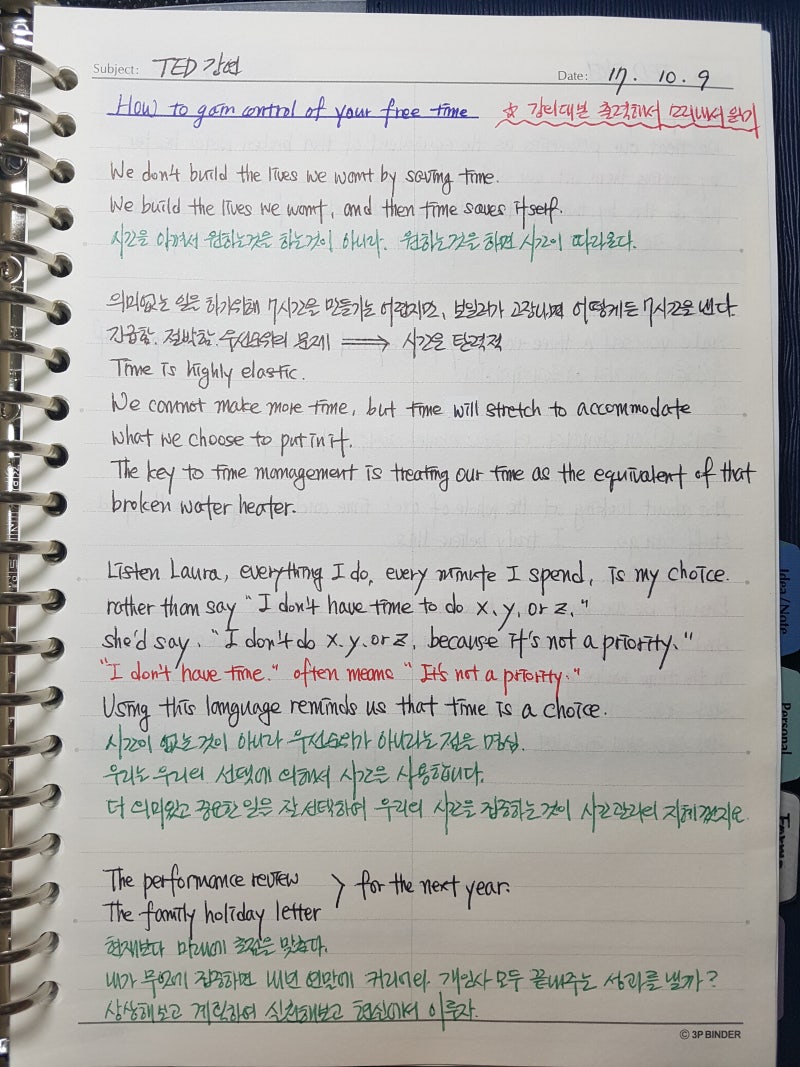 Subject: TED 강연
Date: 17. 10. 9
How to gain control of your free time ☆ 강의대본 출력해서 모리내서 읽기
We don't build the lives we want by saving time.
We build the lives we want, and then time saves itself.
시간을 아껴서 원하는것을 하는것이 아니라. 원하는것을 하면 시간이 따라온다.
의미없는 일은 하기위해 7시간을 만들기는 어렵지만, 보일러가 고장나면 어떻게든 7시간을 낸다.
긴급함. 절박함. 우선순위의 문제 ⟹ 시간은 탄력적
Time is highly elastic.
We connot make more time, but time will stretch to accommodate
what we choose to put in it.
The key to time management is treating our time as the equivalent of that
broken water heater.
Listen Laura, everything I do, every minute I spend, is my choice.
rather than say "I don't have time to do x, y, or z,"
she'd say. "I don't do x. y. or z, because it's not a priority."
"I don't have time." often means "It's not a priority."
Using this language reminds us that time is a choice.
시간이 없는것이 아니라 우선순위가 아니라는 점을 명심.
우리는 우리의 선택에 의해서 시간을 사용합니다.
더 의미있고 중요한 일은 잘 선택하여 우리의 시간을 집중하는것이 시간관리의 지혜겠지요.
The performance review
The family holiday letter > for the next year.
현재보다 미래에 초점을 맞춘다.
내가 무엇에 집중하면 내년 연말에 커리어와 개인사 모두 끝내주는 성과를 낼까?
상상해보고 계획하여 실천해보고 현실에서 이루자.
© 3P BINDER
Idea/Note
Personal